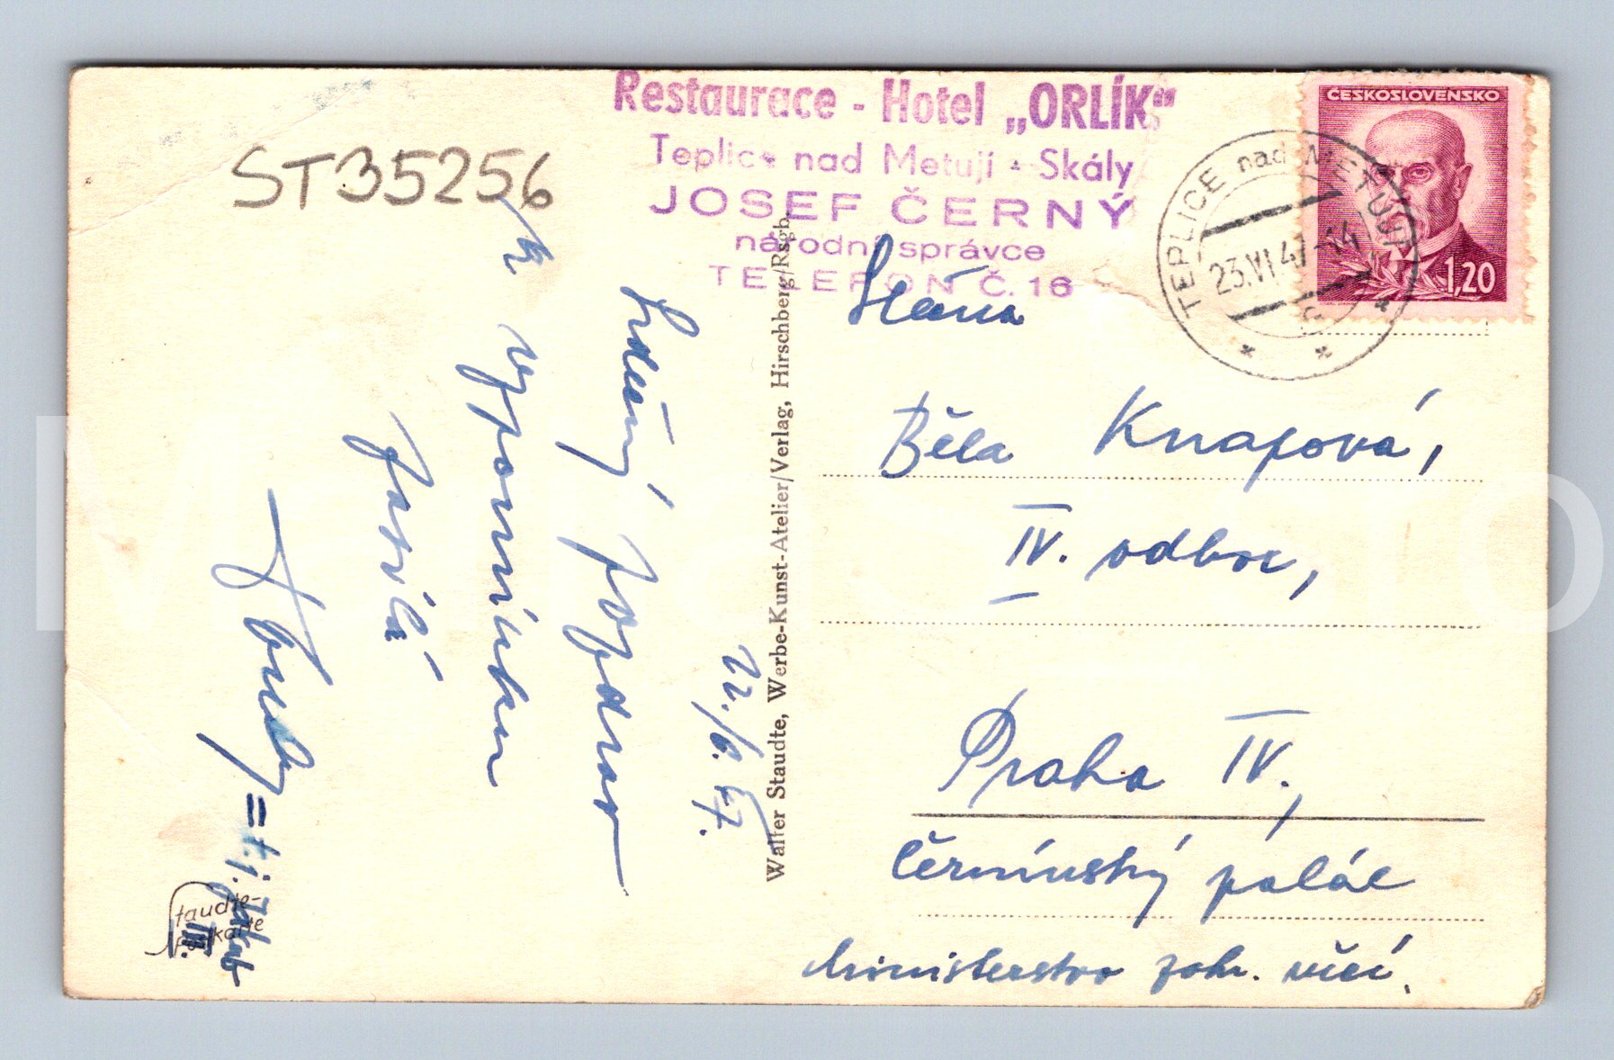 ST35256
Restaurace - Hotel „ORLÍK“
Teplice nad Metují - Skály
JOSEF ČERNÝ
národní správce
TELEFON Č. 16
ČESKOSLOVENSKO
1,20
TEPLICE nad METUJÍ
23.VI.47-14
Slečna
Běla Knapová,
IV. odbor,
Praha IV.,
Černínský palác
Ministerstvo zahr. věcí.
22./6. 47.
Srdečný pozdrav
vzpomínkou
Walter Staudte, Werbe-Kunst-Atelier/Verlag, Hirschberg/Rsgb.
=t.j. Jakub
III.
Staudte-
Postkarte